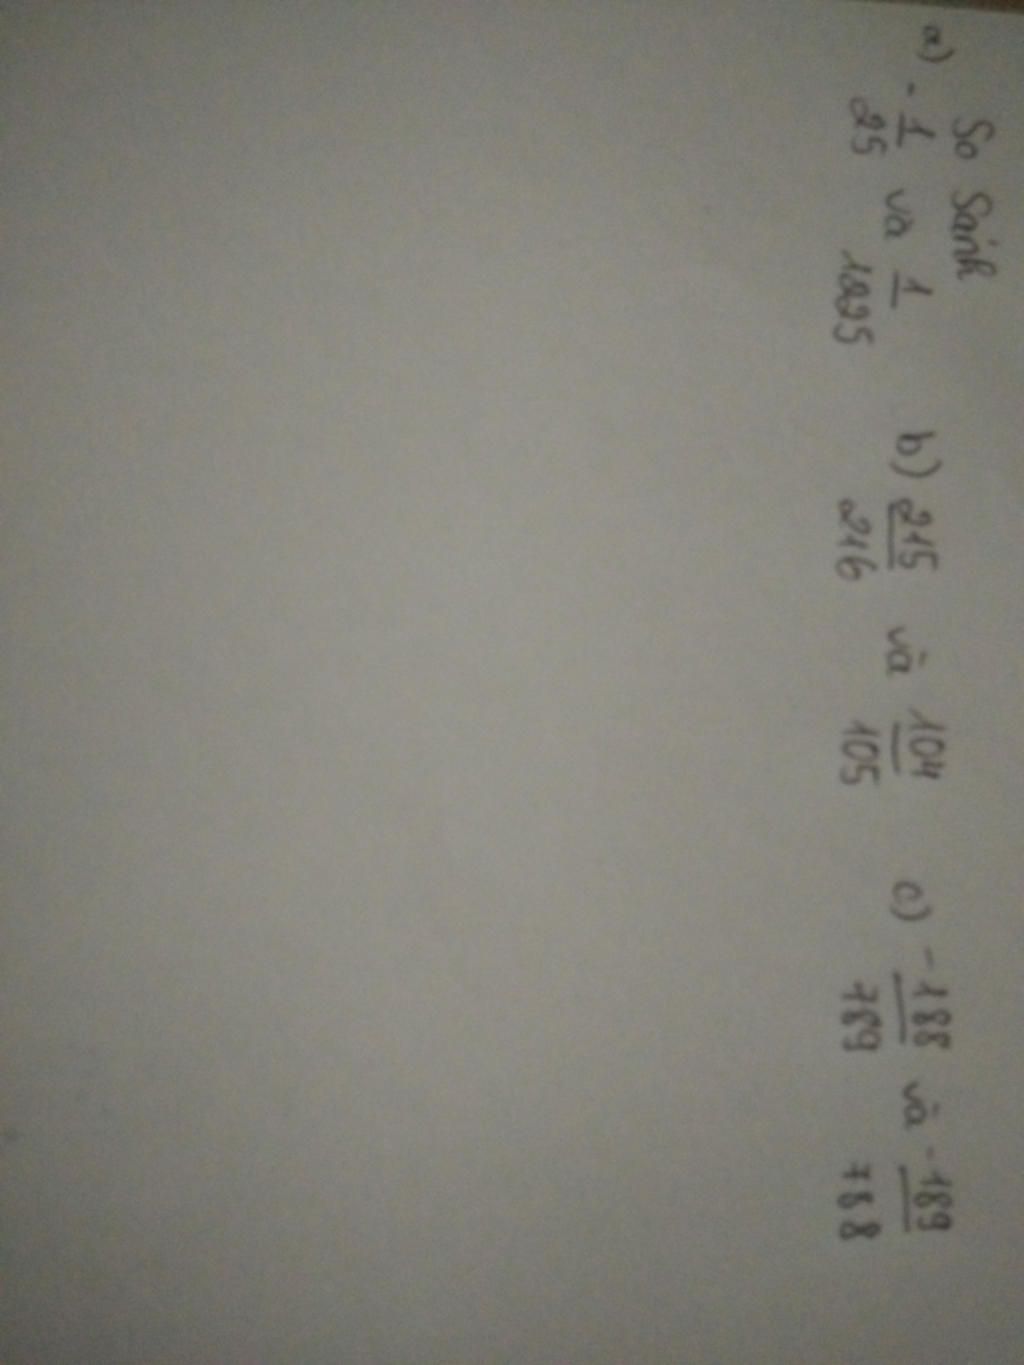 So Sánh
a) - 1/25 và 1/1225 b) 215/216 và 104/105 c) -188/789 và -189/788